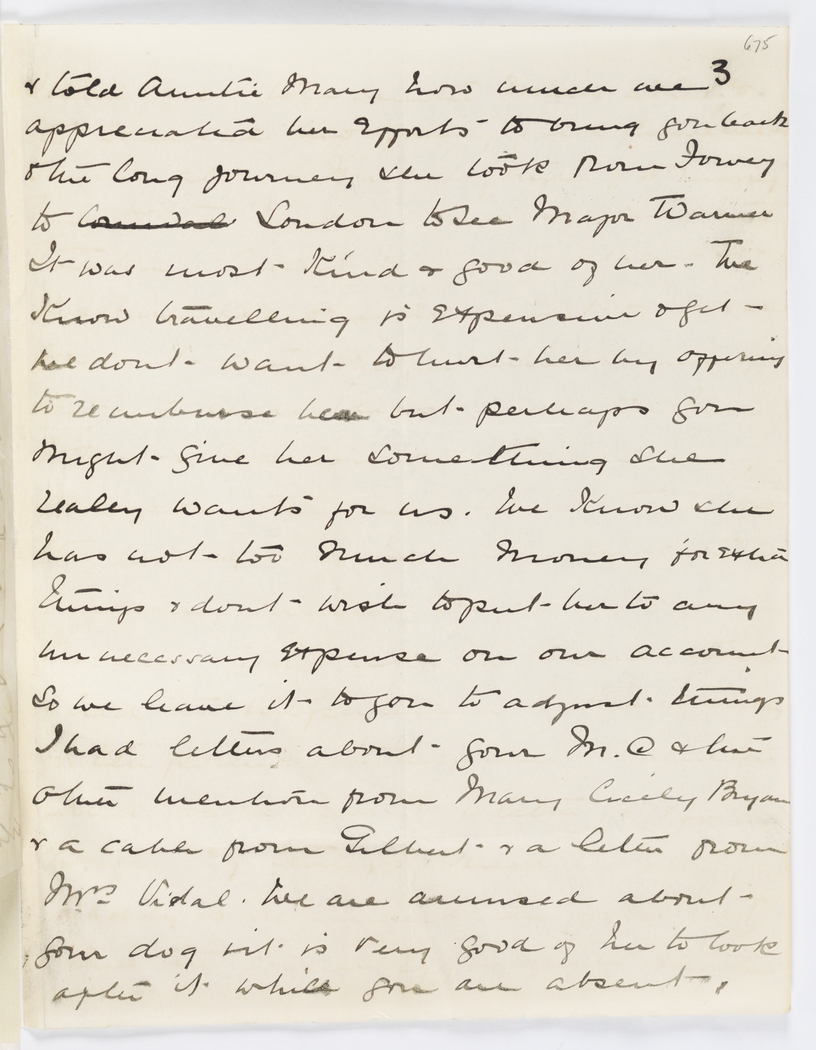 675
3
& told Auntie Mary how much we
appreciated her efforts to bring you back
& the long journey she took from Fowey
to Cornwall London to see Major Warner
It was most kind & good of her. We
know travelling is expensive & yet
we dont want to hurt her by offering
to reimburse her but perhaps you
might give her something she
realey wants for us. We know she
has not too much money for extra
things & dont wish to put her to any
unnecessary expense on our account
So we leave it to you to adjust things
I had letters about your M.C & the
other mention from Mary Cicely Bryan
& a cable from Gilbert & a letter from
Mrs Vidal. We are amused about
your dog & it is very good of her to look
after it while you are absent,